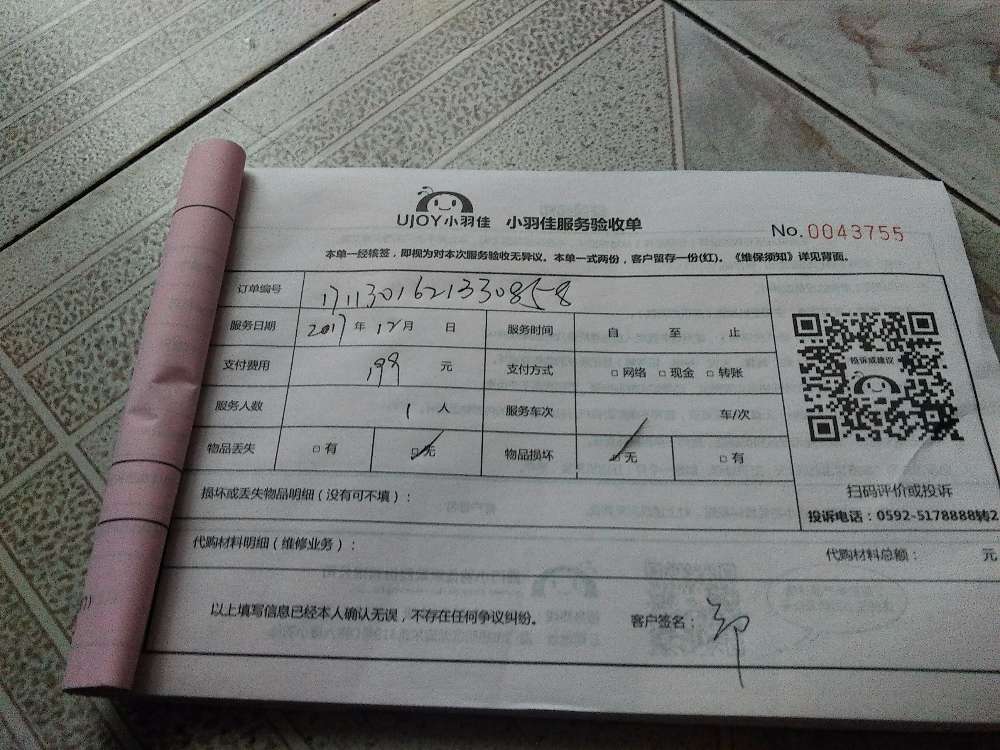 UJOY小羽佳 小羽佳服务验收单 No.0043755
本单一经核签，即视为对本次服务验收无异议。本单一式两份，客户留存一份(红)。《维保须知》详见背面。
订单编号 171130162133085858
服务日期 2017 年 12 月 日 服务时间 自 至 止
支付费用 199 元 支付方式 □ 网络 □ 现金 □ 转账
服务人数 1 人 服务车次 车/次
物品丢失 □ 有 □ 无 物品损坏 □ 无 □ 有
投诉或建议
扫码评价或投诉
投诉电话：0592-5178888转2
损坏或丢失物品明细（没有可不填）：
代购材料明细（维修业务）： 代购材料总额： 元
以上填写信息已经本人确认无误，不存在任何争议纠纷。 客户签名：